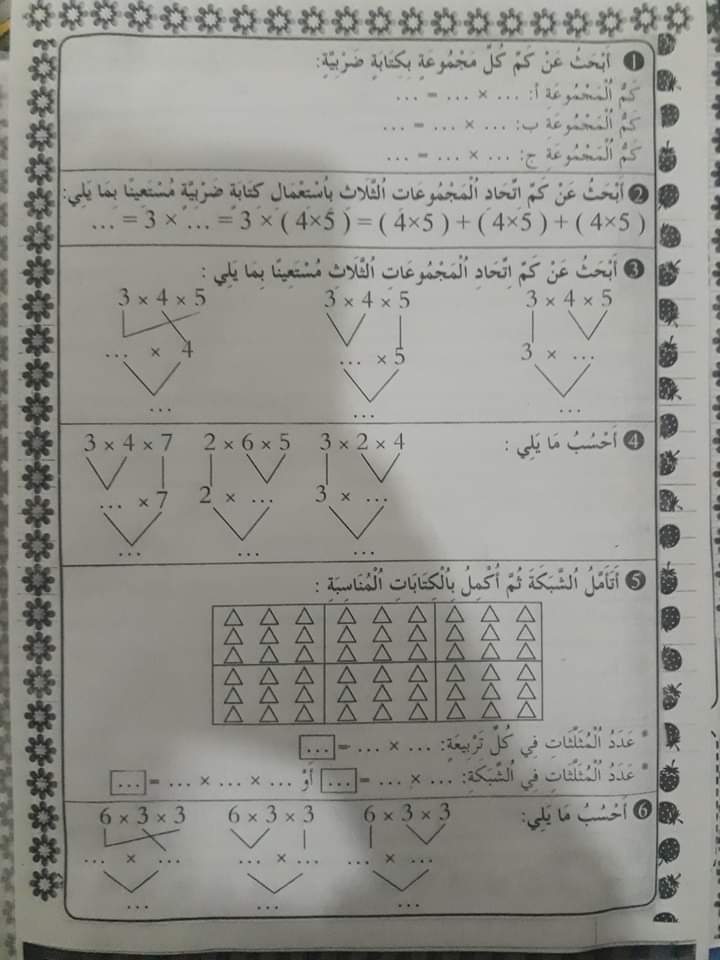 ❶ أَبْحَثُ عَنْ كَمِّ كُلِّ مَجْمُوعَةٍ بِكِتَابَةٍ ضَرْبِيَّةٍ:
كَمُّ الْمَجْمُوعَةِ أ: ... × ... = ...
كَمُّ الْمَجْمُوعَةِ ب: ... × ... = ...
كَمُّ الْمَجْمُوعَةِ ج: ... × ... = ...
❷ أَبْحَثُ عَنْ كَمِّ اتِّحَادِ الْمَجْمُوعَاتِ الثَّلَاثِ بِاسْتِعْمَالِ كِتَابَةٍ ضَرْبِيَّةٍ مُسْتَعِينًا بِمَا يَلِي:
... = 3 × ... = 3 × ( 4×5 ) = ( 4×5 ) + ( 4×5 ) + ( 4×5 )
❸ أَبْحَثُ عَنْ كَمِّ اِتِّحَادِ الْمَجْمُوعَاتِ الثَّلَاثِ مُسْتَعِينًا بِمَا يَلِي :
3 × 4 × 5 3 × 4 × 5 3 × 4 × 5
... × 4 ... × 5 3 × ...
... ... ...
❹ أَحْسُبُ مَا يَلِي :
3 × 4 × 7 2 × 6 × 5 3 × 2 × 4
... × 7 2 × ... 3 × ...
... ... ...
❺ أَتَأَمَّلُ الشَّبَكَةَ ثُمَّ أُكْمِلُ بِالْكِتَابَاتِ الْمُنَاسِبَةِ :
* عَدَدُ الْمُثَلَّثَاتِ فِي كُلِّ تَرْبِيعَةٍ: ... × ... = ...
* عَدَدُ الْمُثَلَّثَاتِ فِي الشَّبَكَةِ: ... × ... = ... أَوْ ... × ... × ... = ...
❻ أَحْسُبُ مَا يَلِي:
6 × 3 × 3 6 × 3 × 3 6 × 3 × 3
... × ... ... × ... ... × ...
... ... ...